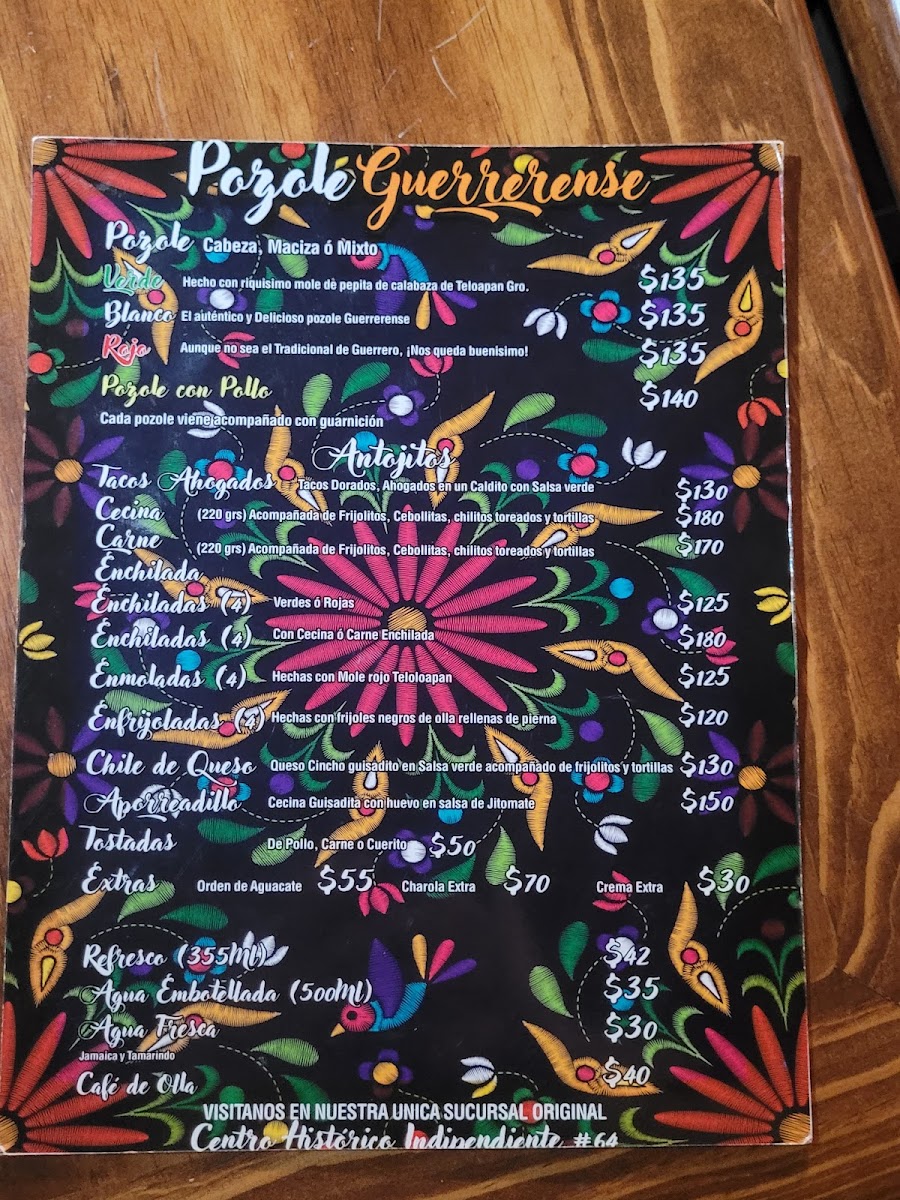 Pozole Guerrerense
Pozole Cabeza, Maciza ó Mixto
Verde Hecho con riquisimo mole dè pepita de calabaza de Teloapan Gro. $135
Blanco El auténtico y Delicioso pozole Guerrerense $135
Rojo Aunque no sea el Tradicional de Guerrero, ¡Nos queda buenisimo! $135
Pozole con Pollo $140
Cada pozole viene acompañado con guarnición
Antojitos
Tacos Ahogados Tacos Dorados, Ahogados en un Caldito con Salsa verde $130
Cecina (220 grs) Acompañada de Frijolitos, Cebollitas, chilitos toreados y tortillas $180
Carne (220 grs) Acompañada de Frijolitos, Cebollitas, chilitos toreados y tortillas $170
Enchilada
Enchiladas (4) Verdes ó Rojas $125
Enchiladas (4) Con Cecina ó Carne Enchilada $180
Enmoladas (4) Hechas con Mole rojo Teloloapan $125
Enfrijoladas (4) Hechas con frijoles negros de olla rellenas de pierna $120
Chile de Queso Queso Cincho guisadito en Salsa verde acompañado de frijolitos y tortillas $130
Aporreadillo Cecina Guisadita con huevo en salsa de Jitomate $150
Tostadas De Pollo, Carne o Cuerito $50
Extras Orden de Aguacate $55 Charola Extra $70 Crema Extra $30
Refresco (355Ml) $42
Agua Embotellada (500Ml) $35
Agua Fresca $30
Jamaica y Tamarindo
Café de Olla $40
VISITANOS EN NUESTRA UNICA SUCURSAL ORIGINAL
Centro Histórico Indipendiente #64